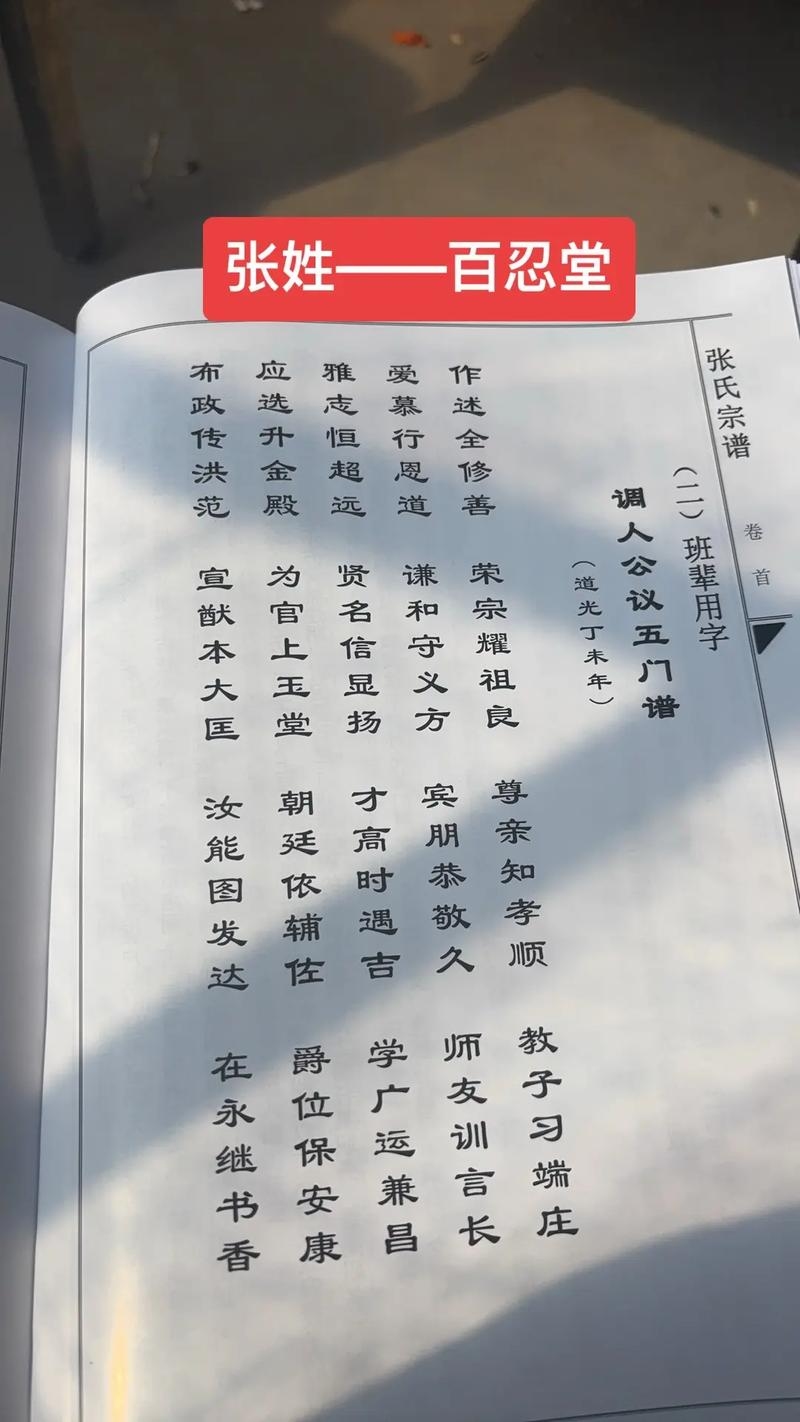 张姓——百忍堂
张氏宗谱
卷首
（二）班辈用字
调人公议五门谱
（道光丁未年）
作述全修善 荣宗耀祖良 尊亲知孝顺 教子习端庄
爱慕行恩道 谦和守义方 宾朋恭敬久 师友训言长
雅志恒超远 贤名信显扬 才高时遇吉 学广运兼昌
应选升金殿 为官上玉堂 朝廷依辅佐 爵位保安康
布政传洪范 宣猷本大匡 汝能图发达 在永继书香